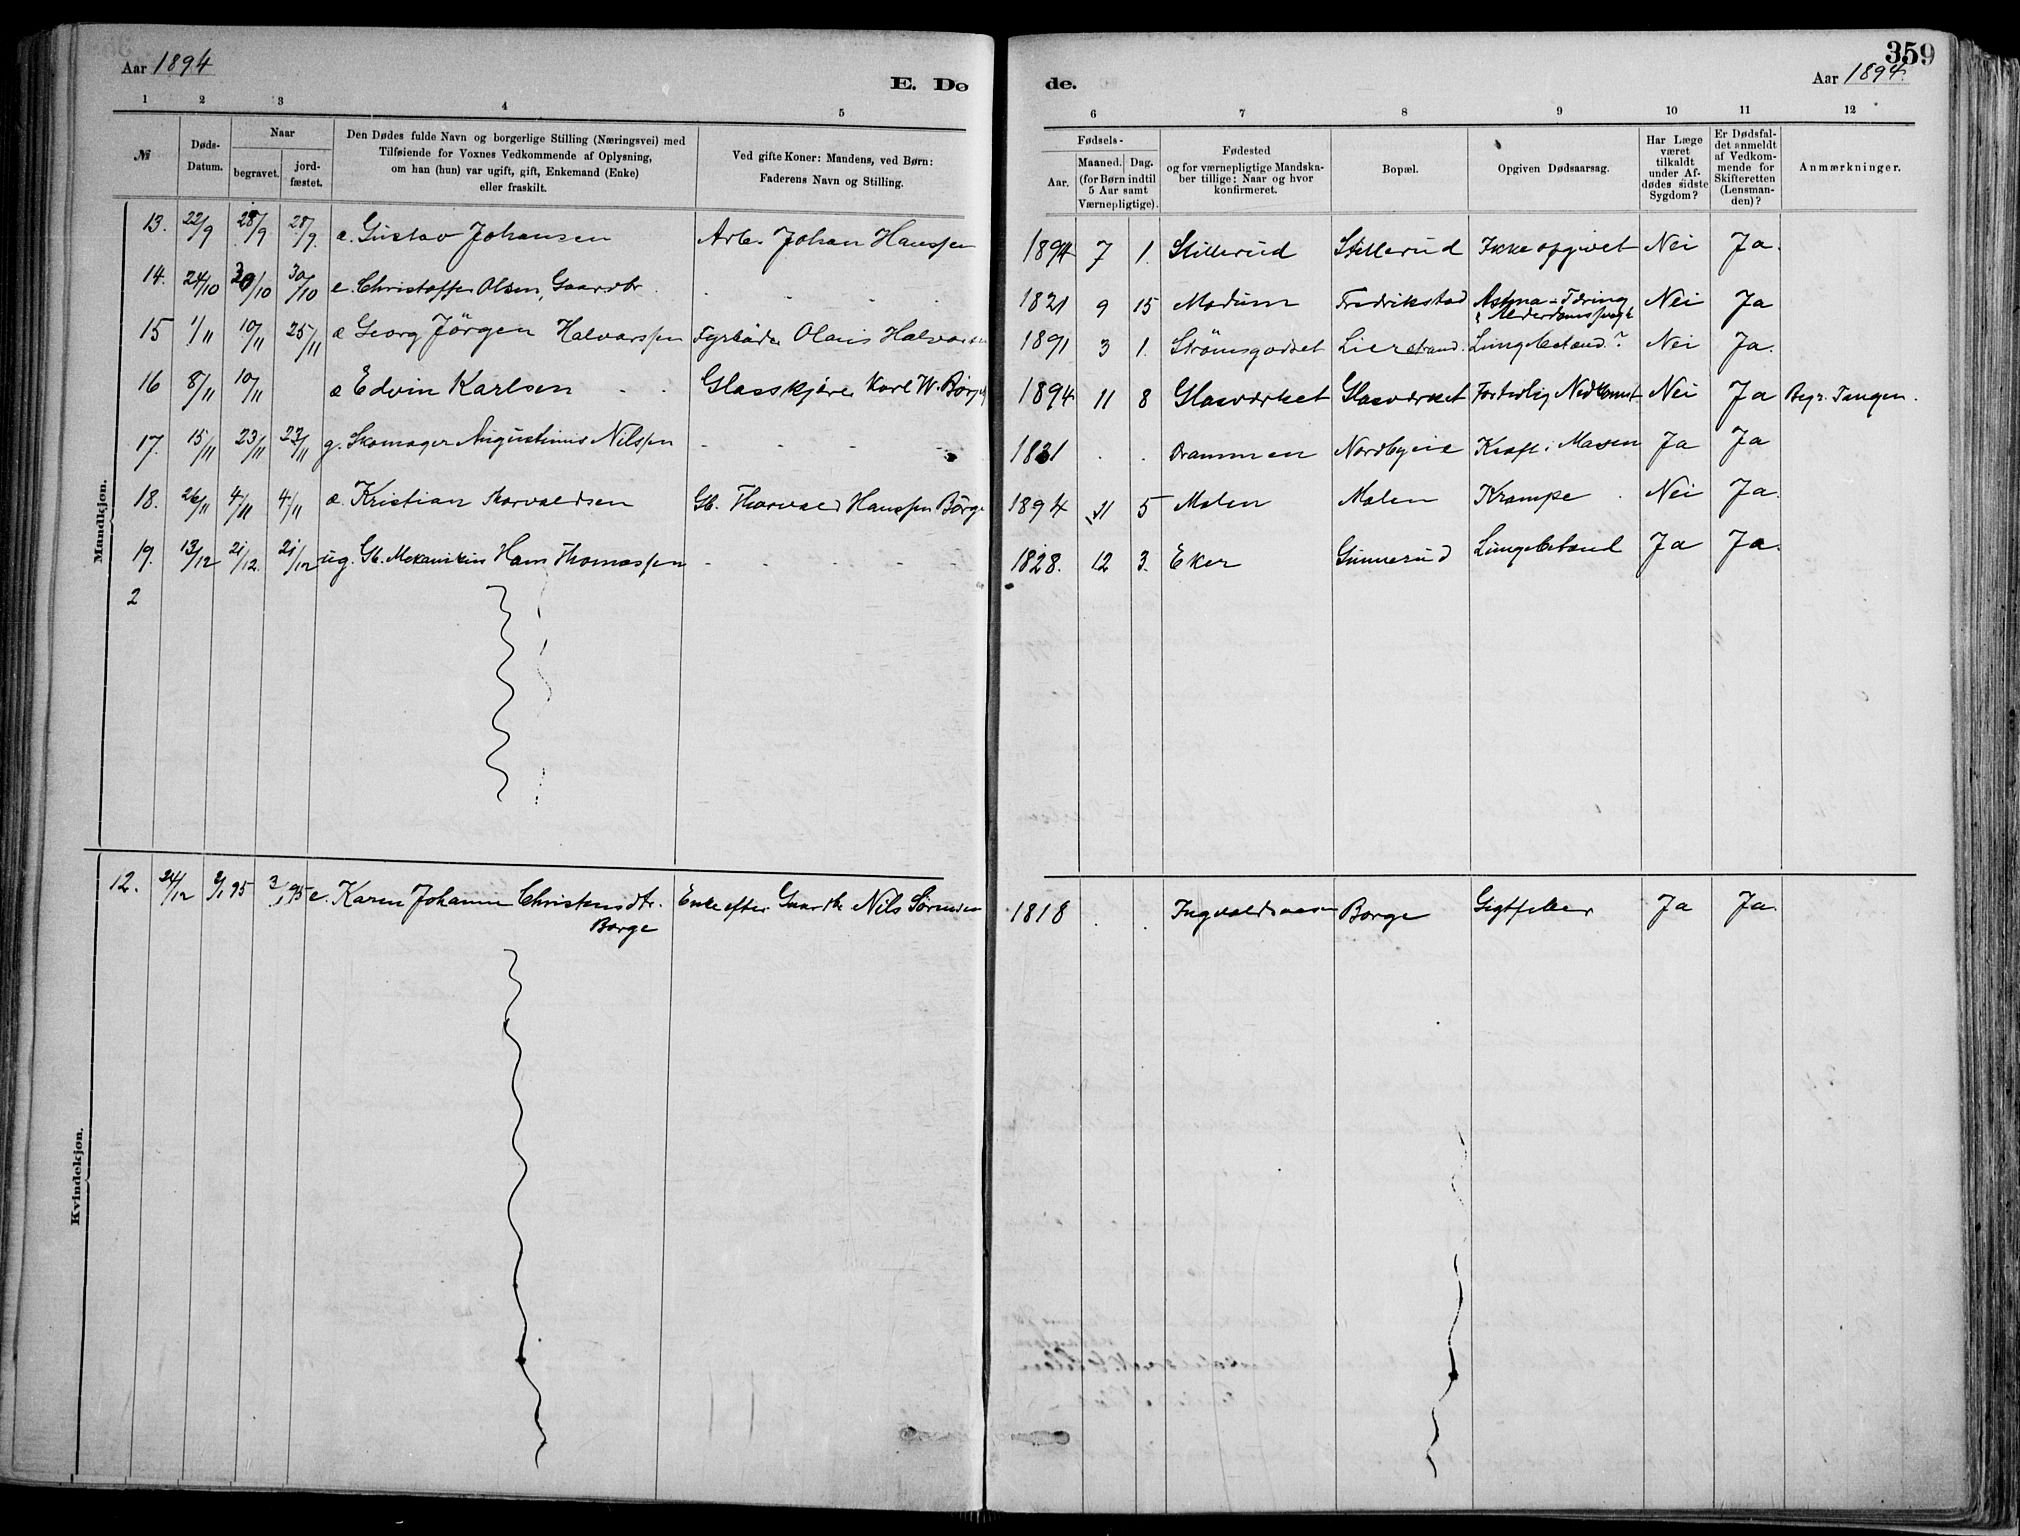 Aar 1894
E. Dø
1 2 3 4 5
№
Døds-Datum.
Naar
begravet.
jord-fæstet.
Den Dødes fulde Navn og borgerlige Stilling (Næringsvei) med
Tilføiende for Voxnes Vedkommende af Oplysning,
om han (hun) var ugift, gift, Enkemand (Enke)
eller fraskilt.
Ved gifte Koner: Mandens, ved Børn:
Faderens Navn og Stilling.
Mandkjøn.
13. 22/9 28/9 28/9. æ. Gustav Johansen Arb. Johan Hanssen
14. 24/10 30/10 30/10 e. Christoffer Olsen, Gaardbr.
15 1/11 10/11 25/11 æ Georg Jörgen Halvorssen Fyrbøder Olaus Halvorsen
16 8/11 10/11 æ Edvin Karlsen Glasskjærer Karl W. Börge
17. 15/11 23/11 23/11 g. Skomager Augustinus Nilssen
18. 26/11 4/11 4/11 æ. Kristian Thorvaldsen Gb. Thorvald Hanssen Börge
19. 13/12 21/12. 21/12 ug. Gb. Mekanikus Hans Thomassen
2
Kvindekjøn.
12. 24/12 2/1 95 3/1 95 e. Karen Johanne Christensdtr. Enke efter Gaardbr Nils Sörensen
Borge
de.
359
Aar 1894.
6 7 8 9 10 11 12
Fødsels-
Aar.
Maaned. Dag.
(for Børn indtil
5 Aar samt
Værnepligtige).
Fødested
og for værnepligtige Mandska-
ber tillige: Naar og hvor
konfirmeret.
Bopæl.
Opgiven Dødsaarsag.
Har Læge
været
tilkaldt
under Af-
dødes sidste
Sygdom?
Er Dødsfal-
det anmeldt
af Vedkom-
mende for
Skifteretten
(Lensman-
den)?
Anmærkninger.
1894 7 1. Stillerud Stillerud Ikke opgivet Nei Ja.
1821 9 15 Modum Fredrikstad Astma - Tæring Nei Ja
& Alderdomssvagh
1891 3 1. Strømsgodset Lierstrand. Lungebetænd.? Nei Ja.
1894 11 8 Glasværket Glasværket Fortidlig Nedkomst Nei Ja Begr. Tangen.
1831 Drammen Nordbyeie Kræft i Maven Ja Ja
1894 11 5 Molen Molen Krampe Nei Ja.
1828. 12 3. Eker Gunnerud Lungebetænd Ja Ja.
1818 Ingvaldsaasen Borge Gigtfeber Ja Ja.